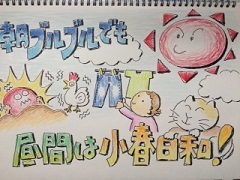 朝ブルブルでも
昼間は小春日和!